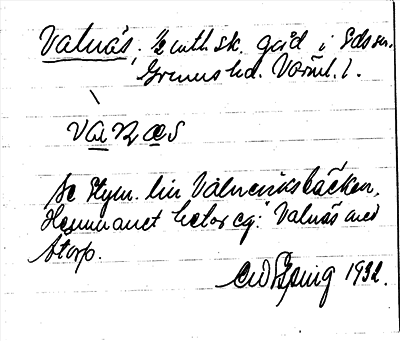 Valnäs, 1/2 mtl. sk. gård i Eds sn.
Grums hd. Värml. l.
vanæs
Se Etym. lin Valnäsbäcken,
Hemmanet heter eg: Valnäs med
Åtorp.
1932.